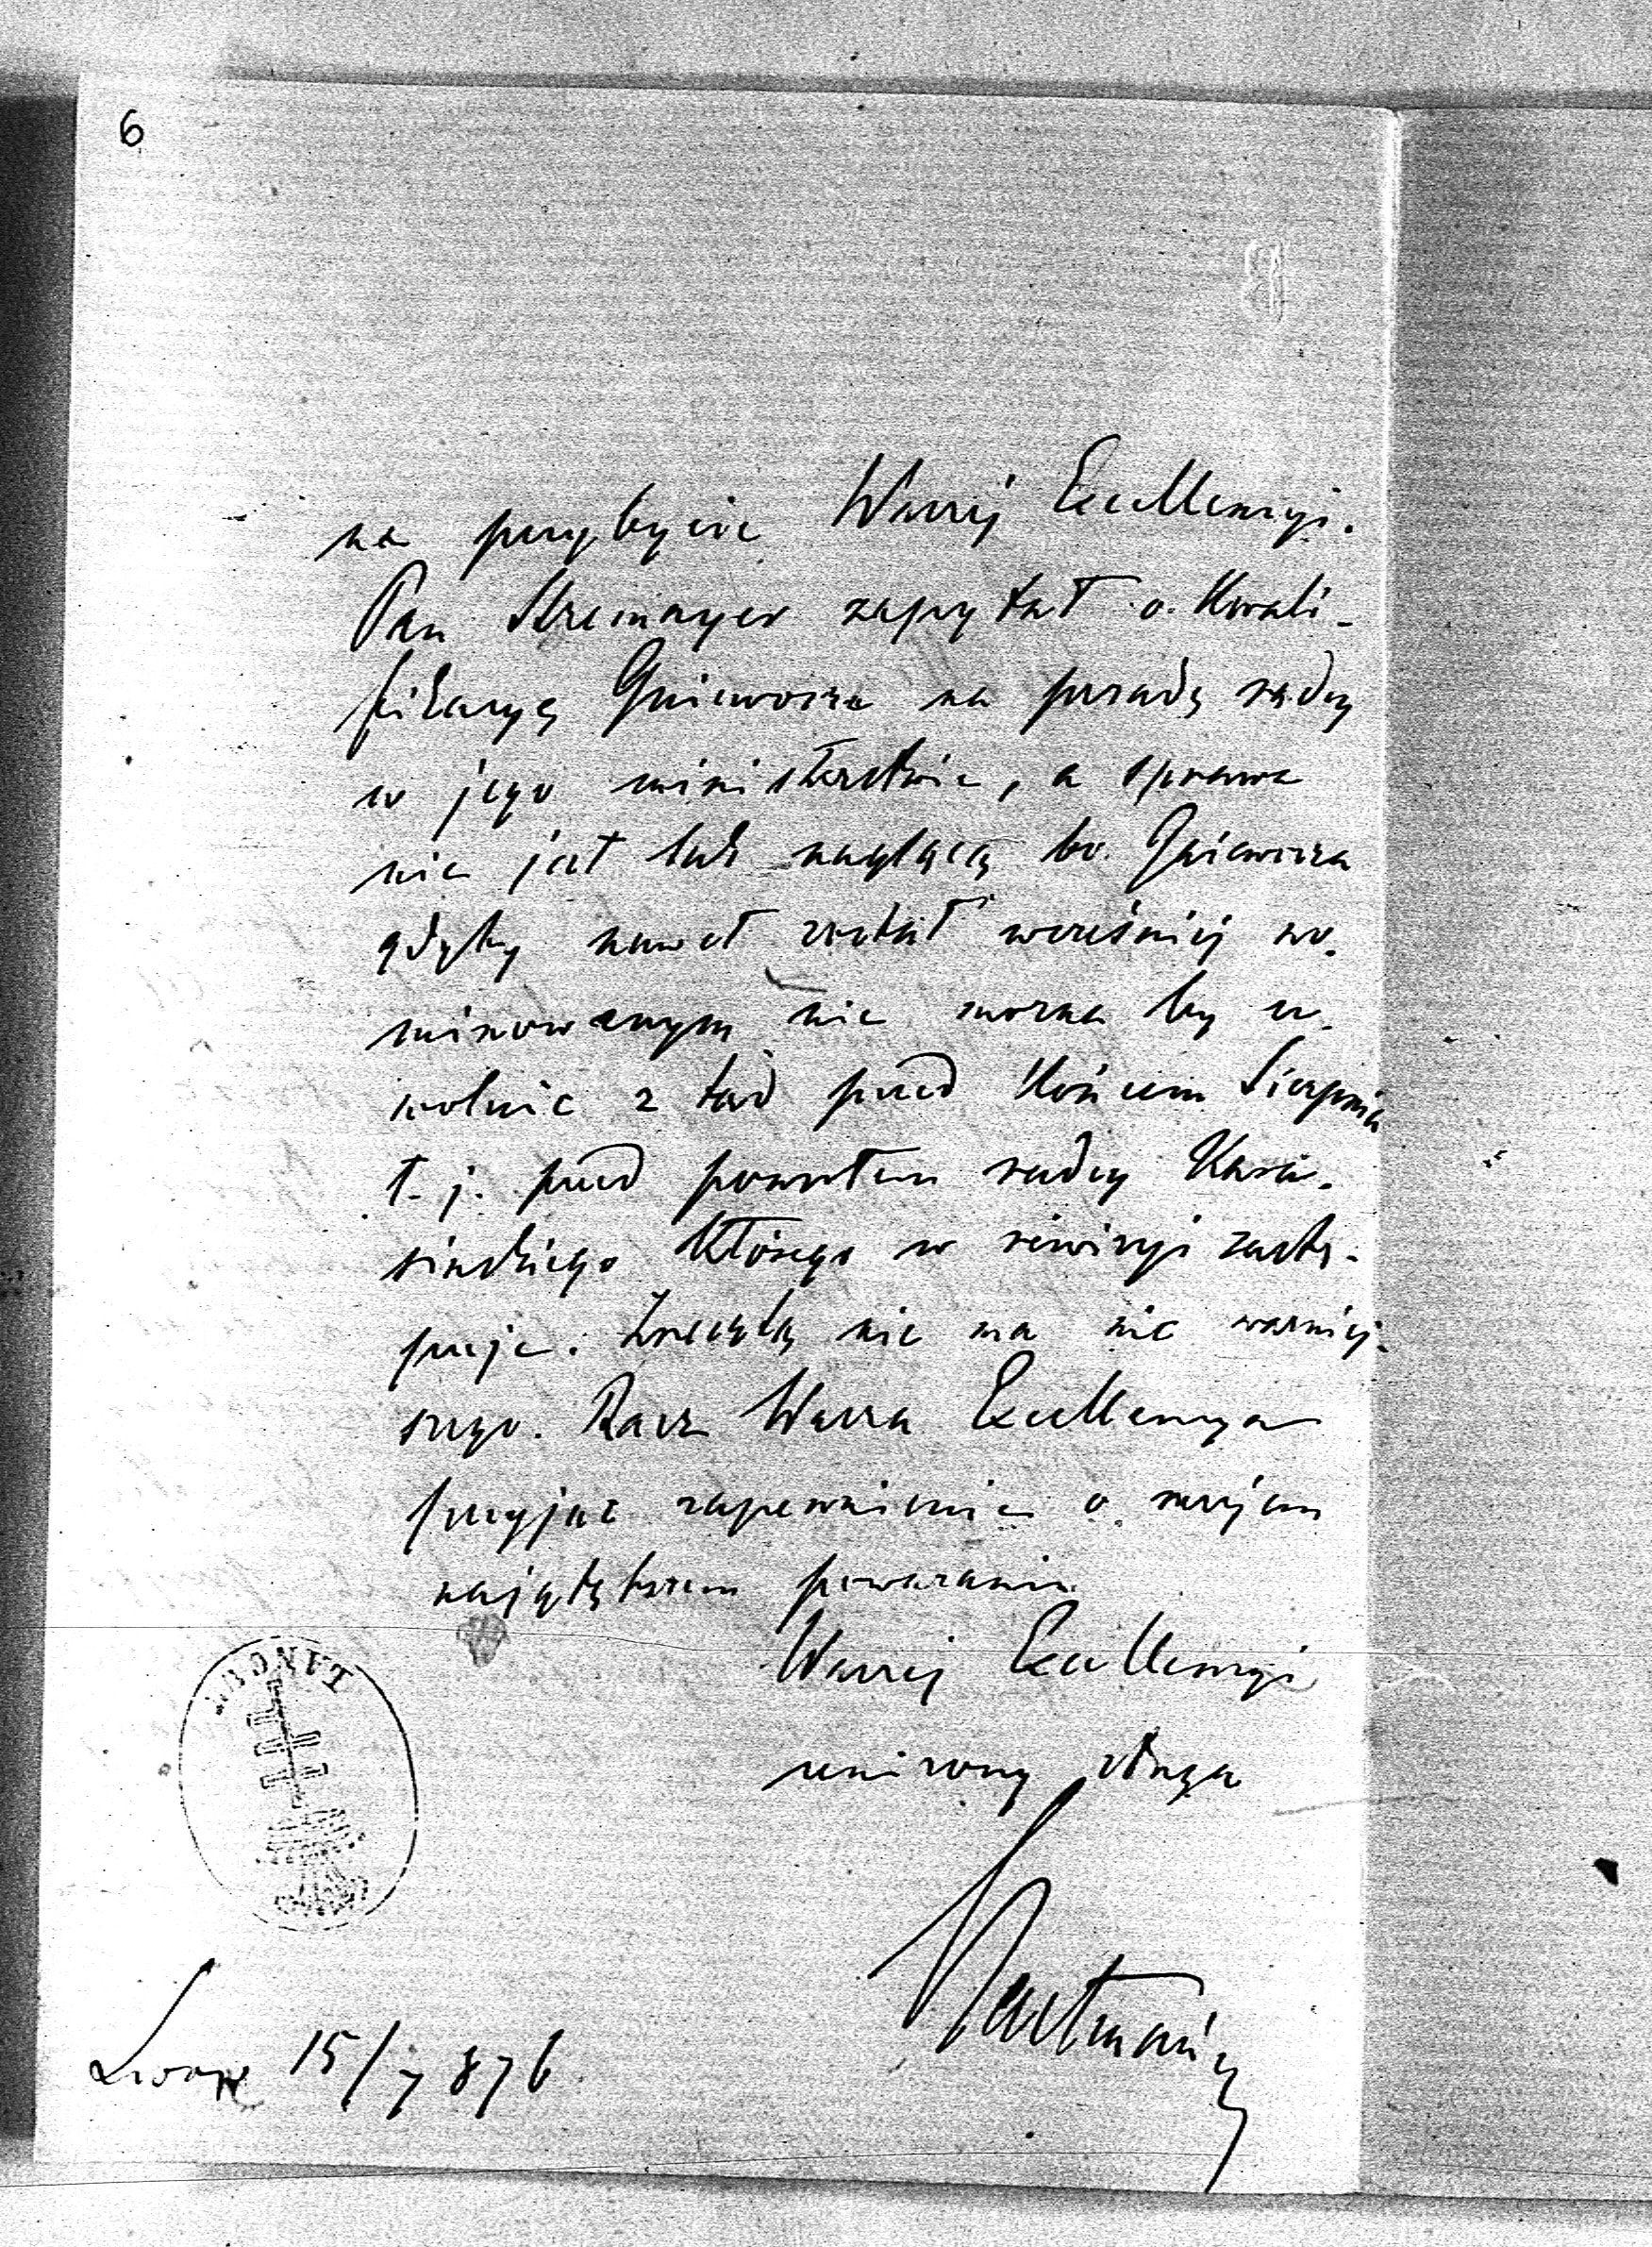 6
na przybycie Waszej Excellencyi.
Pan Stremayer zapytał o kwali-
fikacyę Gniewosza na posadę radcy
w jego ministerstwie, a sprawa
nie jest tak naglącą bo Gniewosza
gdyby nawet został wcześniej no-
minowanym nie można by u-
wolnić z tąd przed końcem Sierpnia
t. j. przed powrotem radcy Kra-
sińskiego którego w rewizyi zastę-
puje. Zresztą nie ma nic ważniej-
szego. Racz Wasza Excellencya
przyjąć zapewnienie o mojem
najgłębszem poważaniu
Waszej Excellencyi
uniżony sługa
Hartmann
Lwów 15/7 876